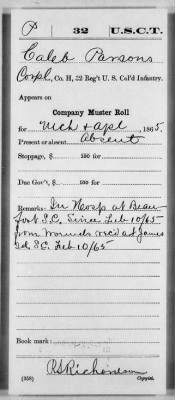 P | 32 | U.S.C.T.
Caleb Parsons
Corpl, Co. H, 32 Reg't U. S. Col'd Infantry.
Appears on
Company Muster Roll
for Mch & Apl, 1865.
Present or absent Absent
Stoppage, $ 100 for
Due Gov't, $ 100 for
Remarks: In Hosp at Beau
fort S.C. Since Feb 10/65
from wounds rec'd at James
Id, S.C. Feb 10/65
Book mark:
(358)
Copyist.